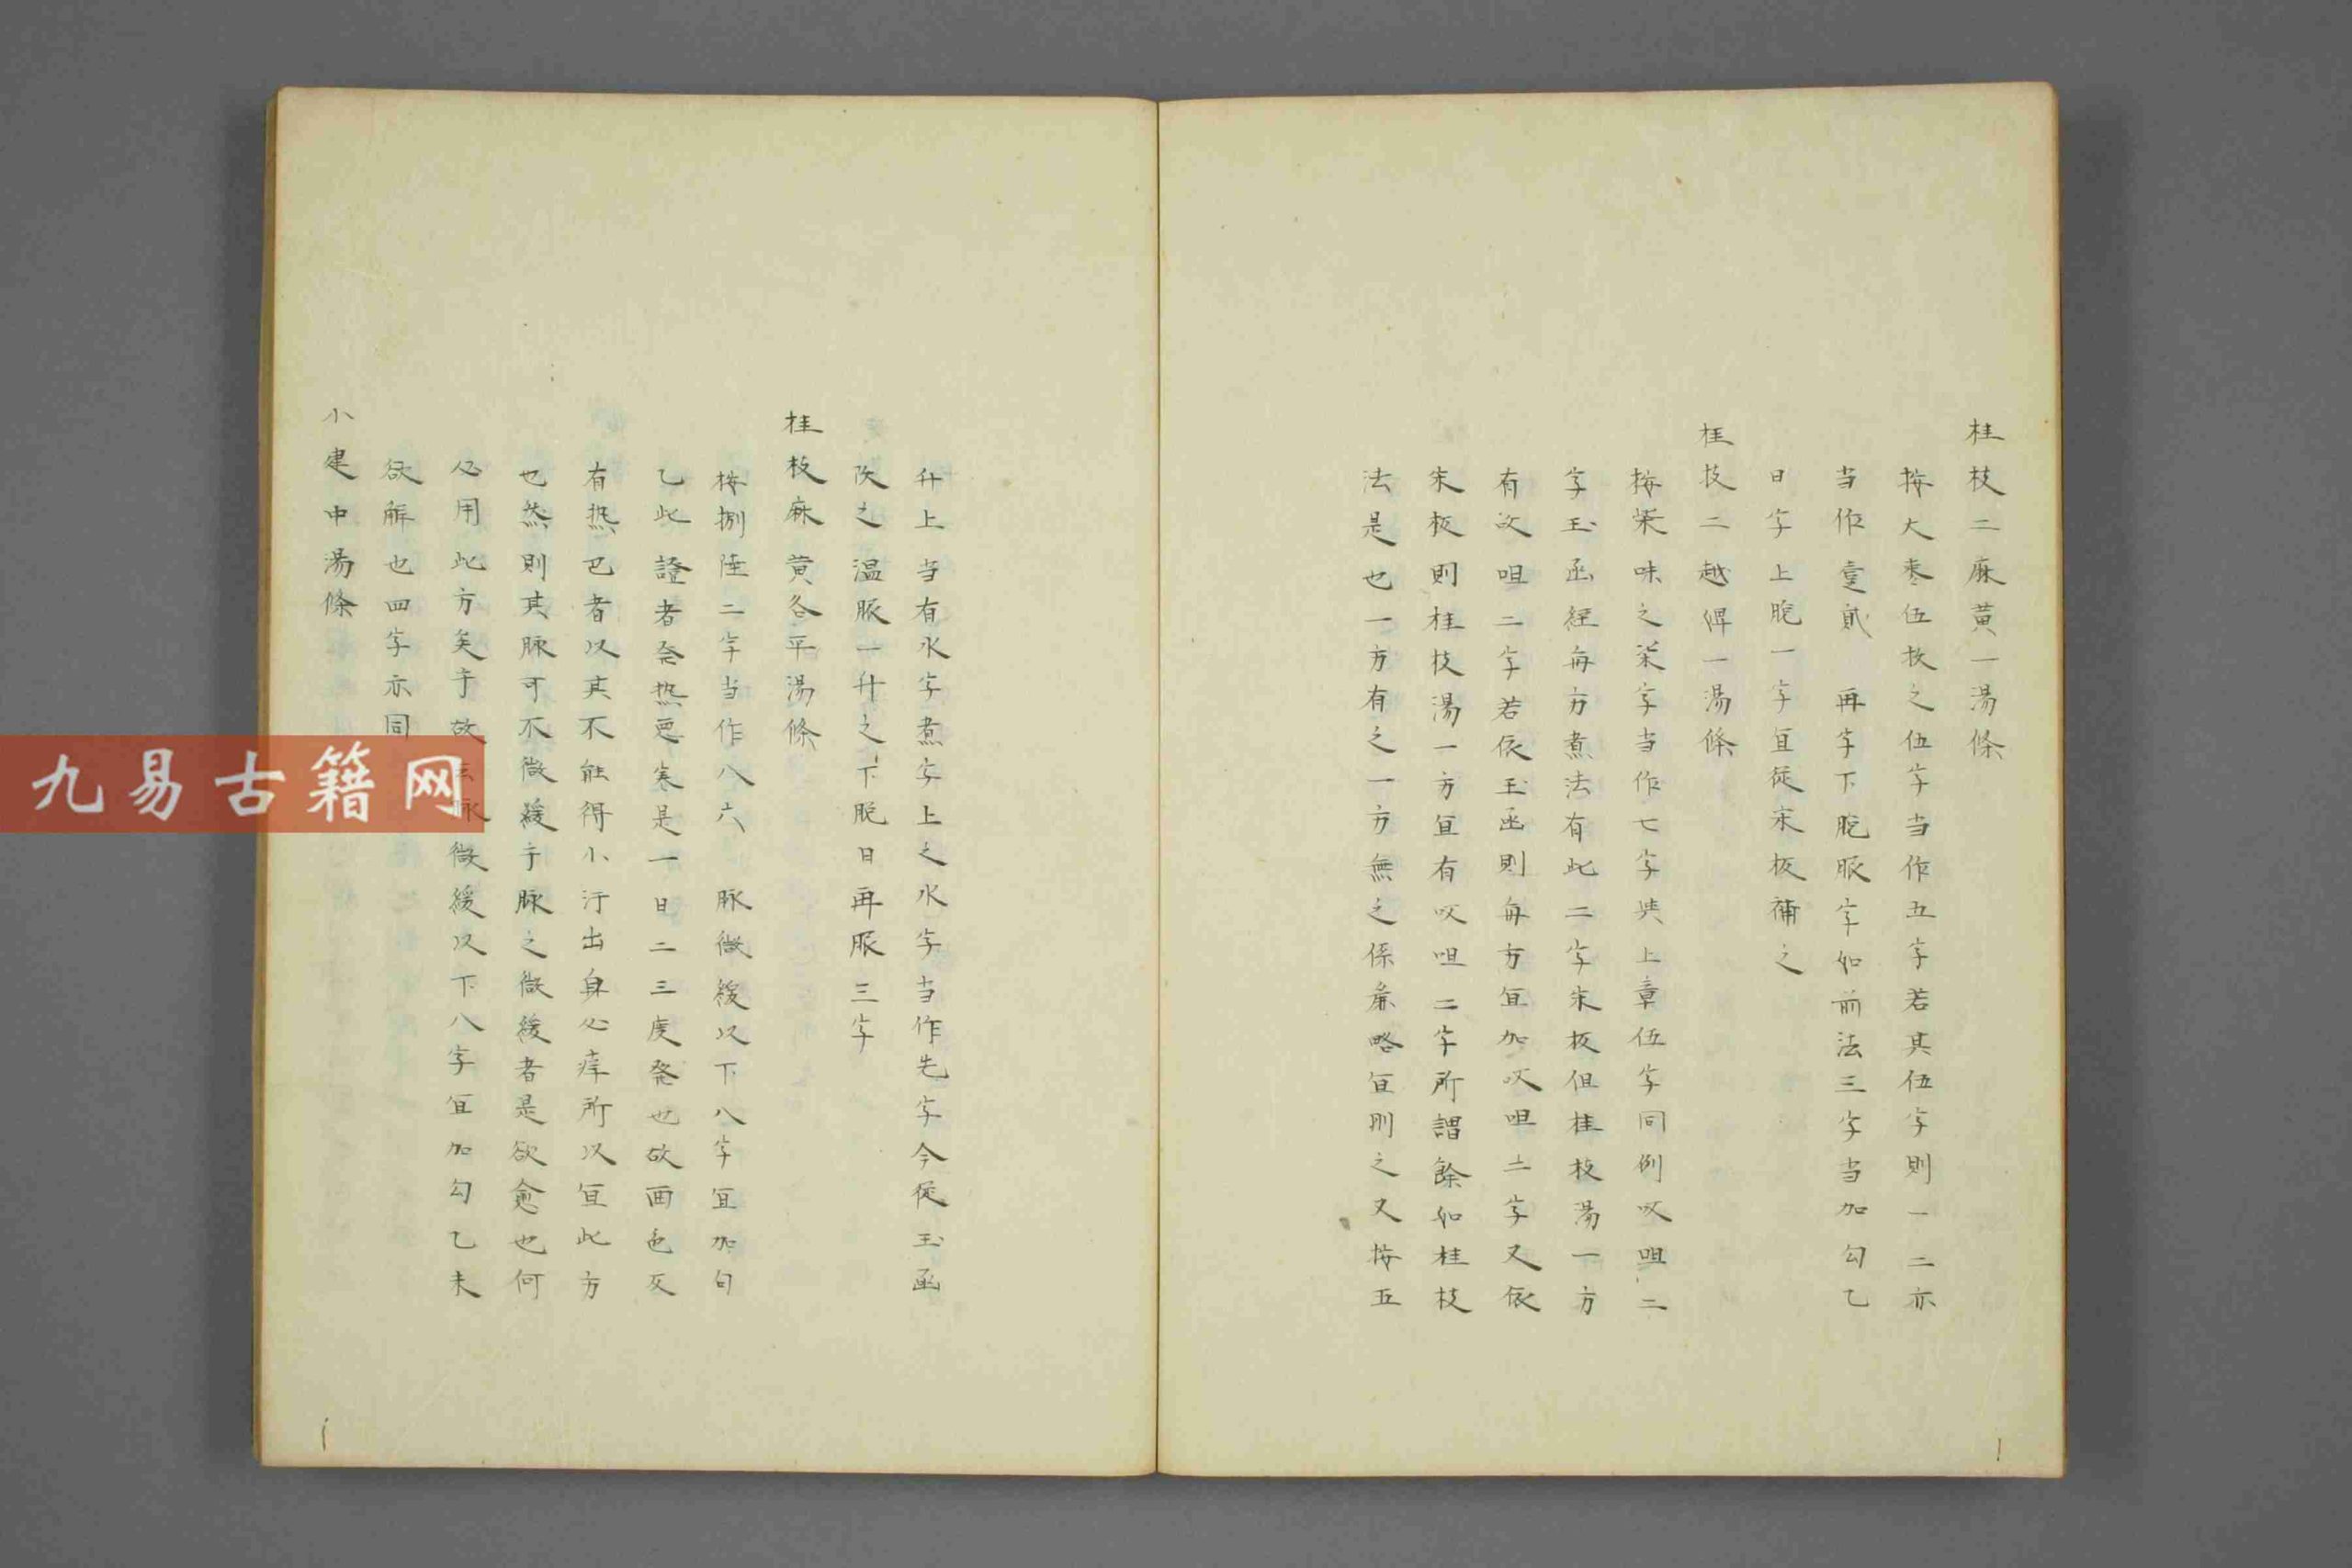 桂枝二麻黄一湯條
按大枣伍枚之伍字当作五字若其伍字則一二亦
当作壹貳 再字下脱服字如前法三字当加勾乙
日字上脱一字宜従宋板補之
桂枝二越婢一湯條
按柴味之柒字当作七字與上章伍字同例㕮咀二
字玉函経每方煮法有此二字宋板但桂枝湯一方
有㕮咀二字若依玉函則每方宜加㕮咀二字又依
宋板則桂枝湯一方宜有㕮咀二字所謂餘如桂枝
法是也一方有之一方無之係兼略宜刪之又按五
升上当有水字煮字上之水字当作先字今従玉函
改之温服一升之下脱日再服三字
桂枝麻黄各半湯條
按捌陸二字当作八六 脈微緩以下八字宜加句
乙此證者発热悪寒是一日二三度発也故面色反
有热色者以其不能得小汗出身必痒所以宜此方
也然則其脈可不微緩乎脈之微緩者是欲愈也何
必用此方矣乎故云脈微緩以下八字宜加勾乙未
欲解也四字亦同
小建中湯條
九易古籍网